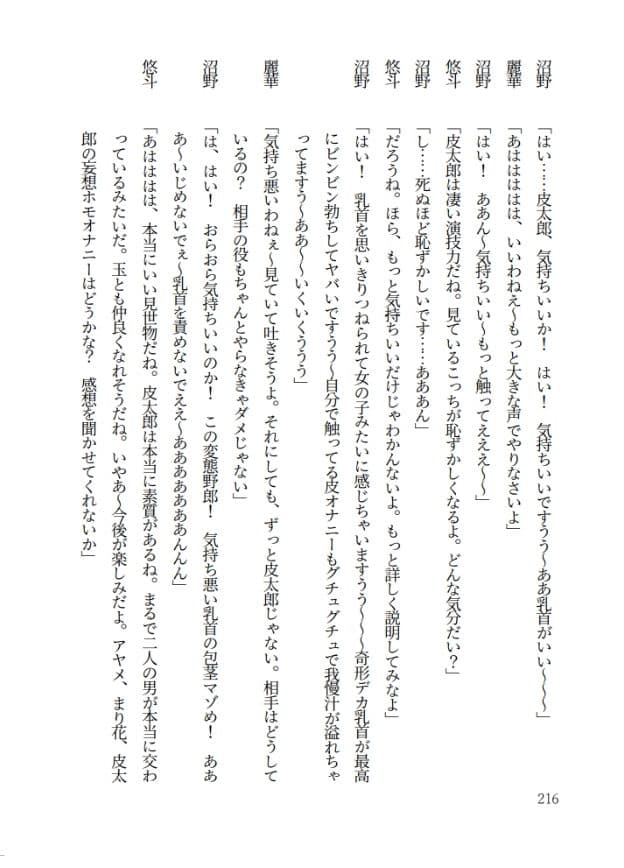 沼野　「はい……皮太郎、気持ちいいか！　はい！　気持ちいいですうう～ああ乳首がいい～～～」
麗華　「あはははは、いいわねえ～もっと大きな声でやりなさいよ」
沼野　「はい！　ああん～気持ちいい～もっと触ってえええ～～」
悠斗　「皮太郎は凄い演技力だね。見ているこっちが恥ずかしくなるよ。どんな気分だい？」
沼野　「し……死ぬほど恥ずかしいです……あああん」
悠斗　「だろうね。ほら、もっと気持ちいいだけじゃわかんないよ。もっと詳しく説明してみなよ」
沼野　「はい！　乳首を思いきりつねられて女の子みたいに感じちゃいますうう～～～奇形デカ乳首が最高
にビンビン勃ちしてヤバいですうう～自分で触ってる皮オナニーもグチュグチュで我慢汁が溢れちゃ
ってますう～ああ～～いくいくううう」
麗華　「気持ち悪いわねぇ～見ていて吐きそうよ。それにしても、ずっと皮太郎じゃない。相手はどうして
いるの？　相手の役もちゃんとやらなきゃダメじゃない」
沼野　「は、はい！　おらおら気持ちいいのか！　この変態野郎！　気持ち悪い乳首の包茎マゾめ！　ああ
あ～いじめないでぇ～乳首を責めないでええ～ああああああああんんん」
悠斗　「あはははは、本当にいい見世物だね。皮太郎は本当に素質があるね。まるで二人の男が本当に交わ
っているみたいだ。玉とも仲良くなれそうだね。いやあ～今後が楽しみだよ。アヤメ、まり花、皮太
郎の妄想ホモオナニーはどうかな？　感想を聞かせてくれないか」
216